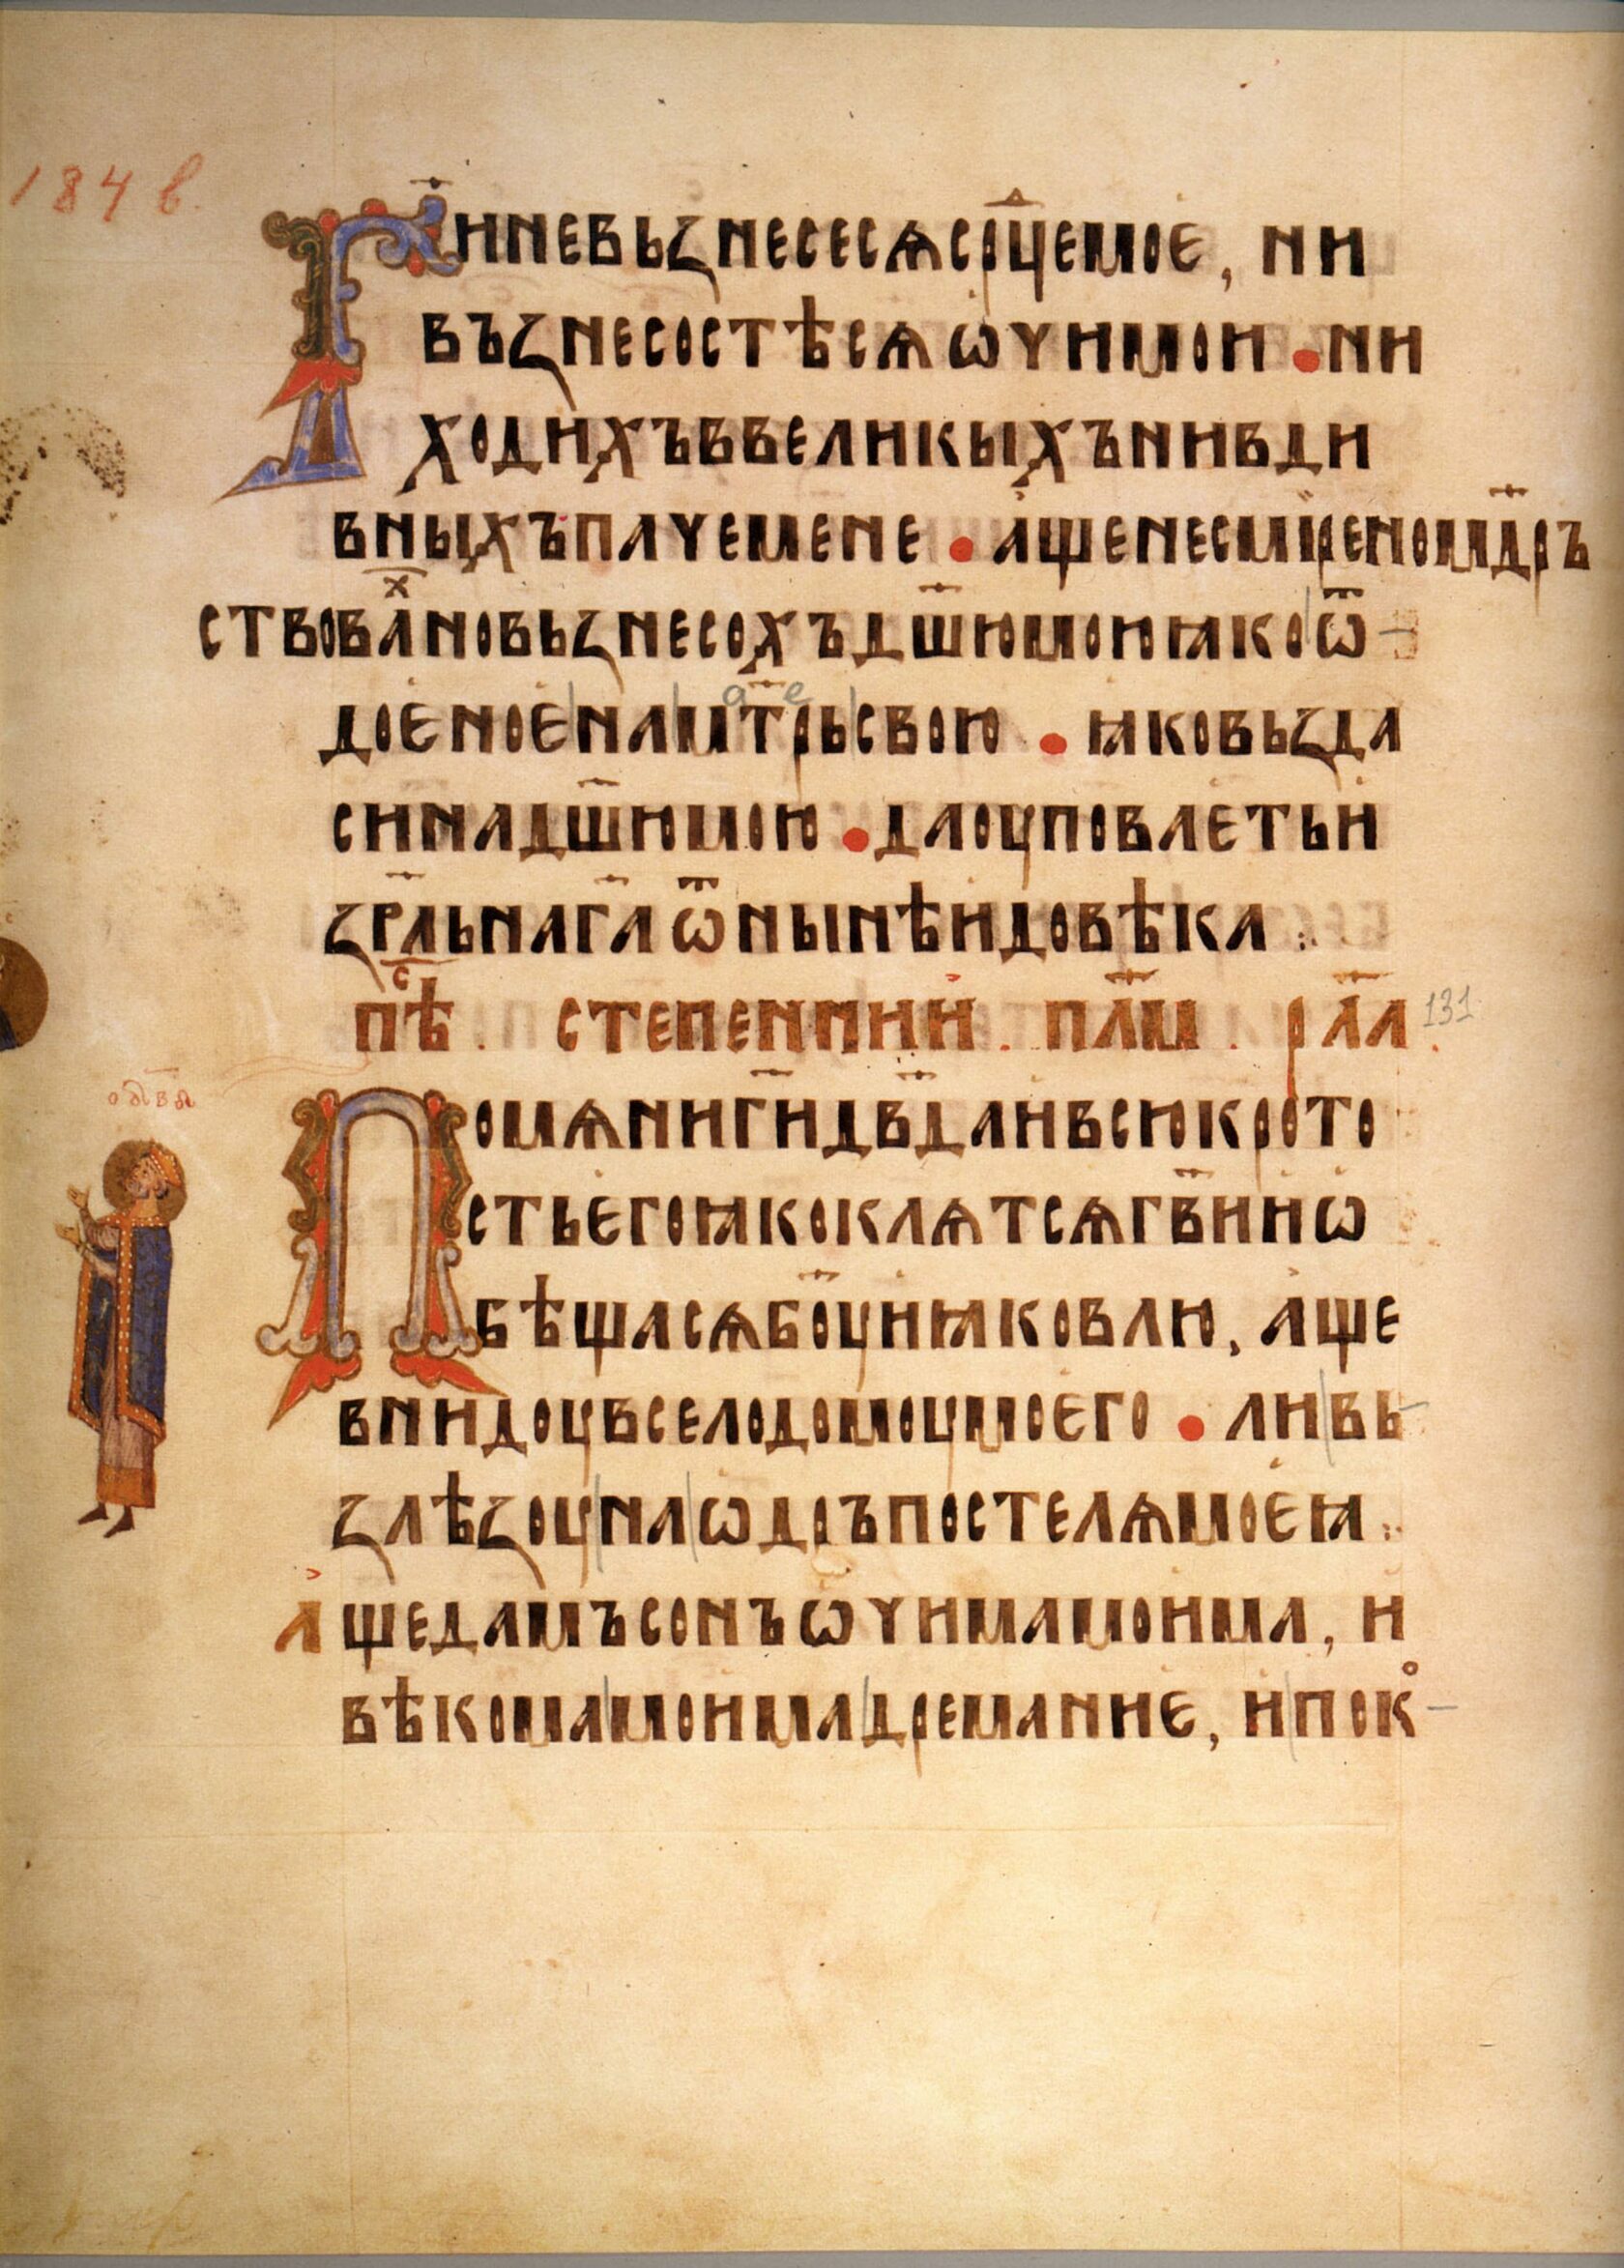 184 в.
Г҃ИНЕВЬЗНЕСЕСѦСРⷣЦЕМОЕ, НИ
ВЪЗНЕСОСТѢСѦѠЧИМОИ • НИ
ХОДИХЪВВЕЛИКЫХЪНИВДИ
ВНЫХЪПАЧЕМЕНЕ • АЩЕНЕСМІРЕНОМ҃ДРЪ
СТВОВАⷯНОВЬЗНЕСОХЪДШ҃ЮМОЮꙖКОѾ
ДОЄНОЄНАМТ҃РЬСВОЮ • ꙖКОВЬЗДА
СИНАДШ҃ЮМОЮ • ДАОУПОВАЄТЬИ
ЗР҃ЛЬНАГ҃АѾНЫНѢИДОВѢКА ⁘
ПѢⷭ . СТЕПЕННИИ . ПЛ҃М . РЛ҃А .
131
о дв҃д
ПОМѦНИГ҃ИДВ҃ДАИВСЮКРОТО
СТЬЕГОꙖКОКЛѦТСѦГВ҃ИИѠ
БѢЩАСѦБО҃УИꙖКОВЛЮ, АЩЕ
ВНИДОУВСЕЛОДОМОУМОЄГО • ЛИВЬ
ЗЛѢЗОУНАѠДРЪПОСТЕЛѦМОЄꙖ ⁘
АЩЕДАМЪСОНЪѠЧИМАМОИМА, И
ВѢКОМАМОИМАДРЕМАНИЄ, ИПОКⷪ